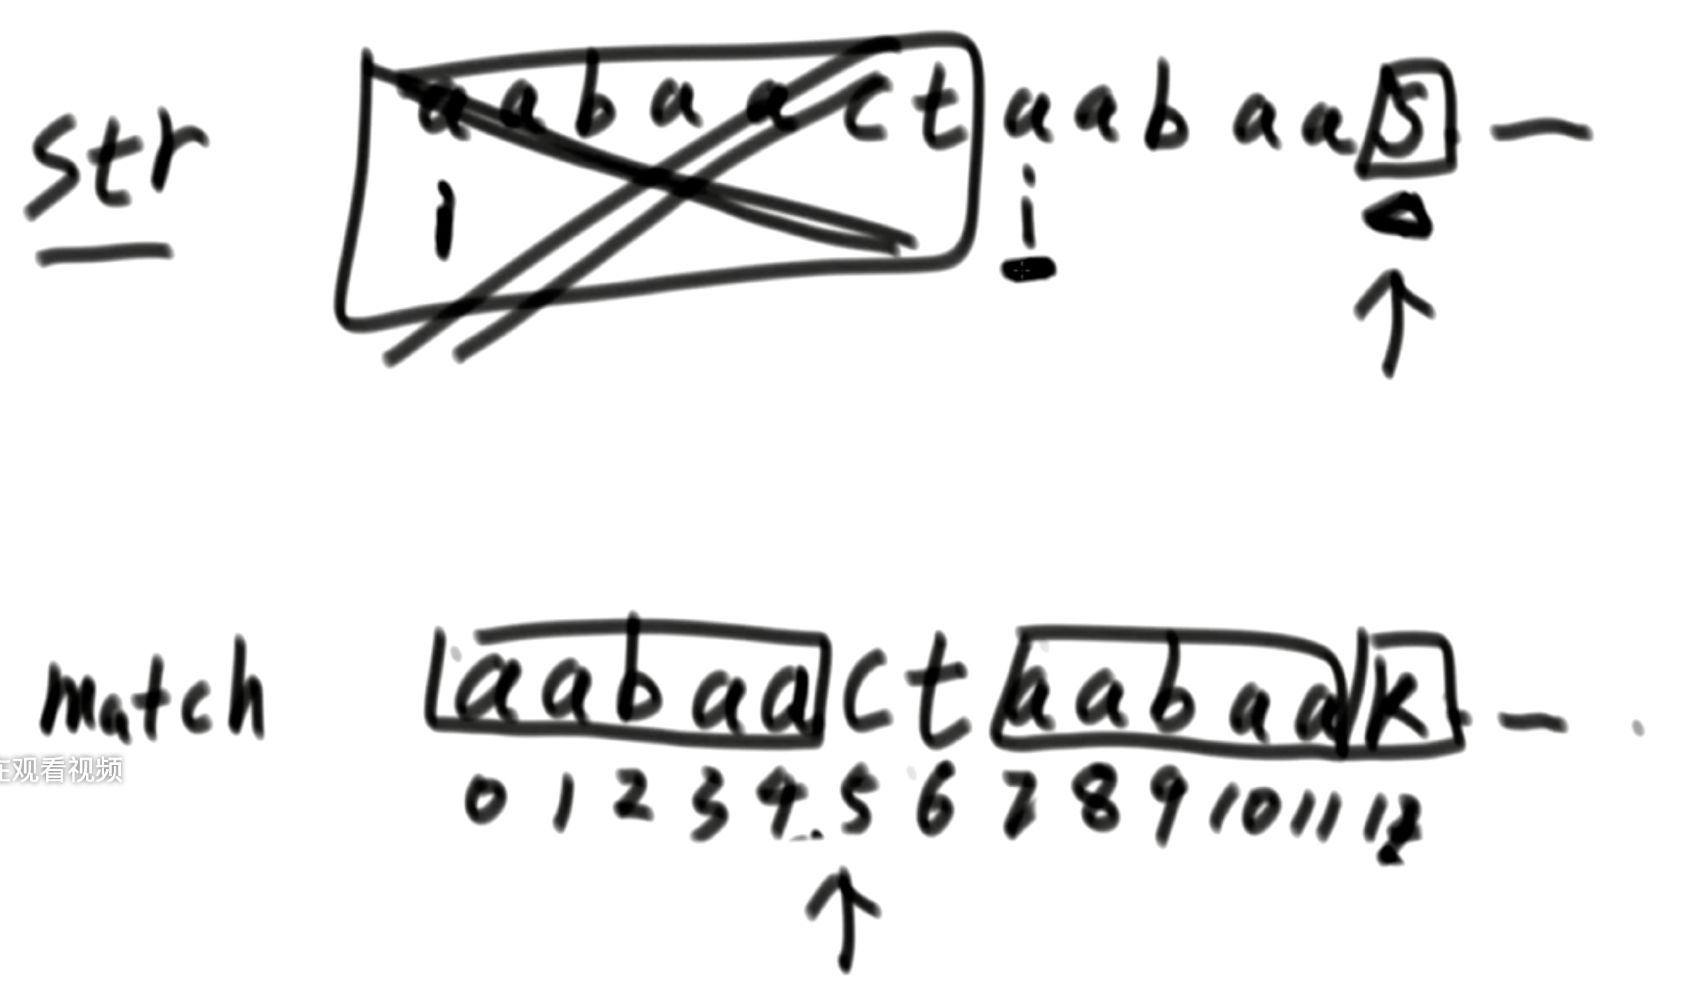 str a a b a a c t a a b a a s —
i i
match a a b a a c t a a b a a k —
在观看视频
0 1 2 3 4 5 6 7 8 9 10 11 12